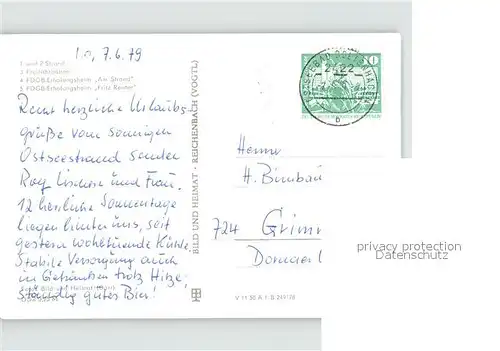 Bo, 7.6.79
1 und 2 Strand
3 Fischerbrunnen
4 FDGB-Erholungsheim „Am Strand"
5 FDGB-Erholungsheim „Fritz Reuter"
Recht herzliche Urlaubs-
grüße vom sonnigen
Ostseestrand senden
und Frau.
12 herrliche Sonnentage
liegen hinter uns, seit
gestern wohltuende Kühle.
Stabile Versorgung auch
in Getränken trotz Hitze,
ständig gutes Bier!
BILD UND HEIMAT · REICHENBACH (VOGTL)
V 11 50 A 1 B
10
OSTSEEBAD BOLTENHAGEN
b
Herrn
H. Birnbau
724 Grimm
privacy protection
Datenschutz